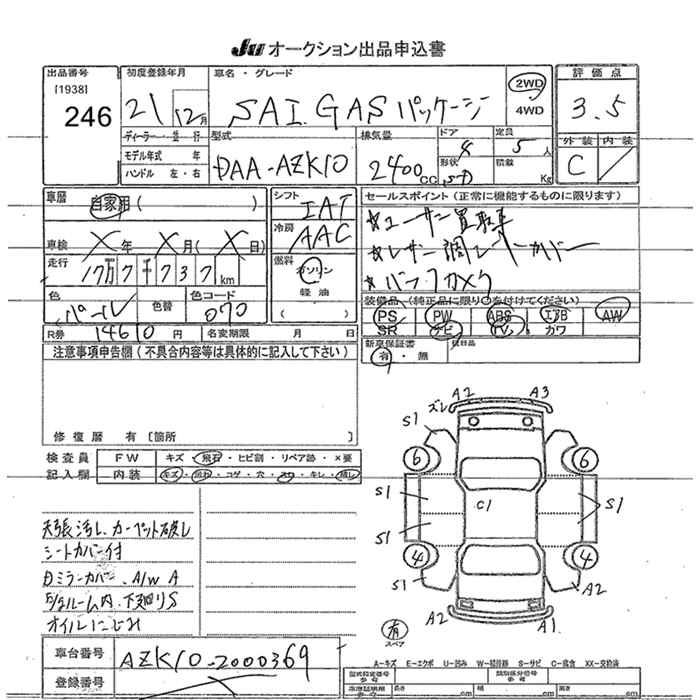 JU オークション出品申込書
出品番号
[1938]
246
初度登録年月
21 12月
車名・グレード
SAI. GAS パッケージ
2WD
4WD
評価点
3.5
外装 内装
C /
ディーラー・並行
モデル年式 年
ハンドル 左・右
型式
DAA-AZK10
排気量
2400cc
ドア
4
形状
SD
定員
5人
積載
Kg
車歴
自家用( )
車検 X年 X月(X日)
走行
17万7千737km
色
パール
色替
色コード
070
シフト
IAT
冷房
AAC
燃料
ガソリン
軽油
( )
セールスポイント(正常に機能するものに限ります)
★ユーザー買取車
★レザー調シートカバー
★バックカメラ
装備品(純正品に限り○を付けてください)
PS PW ABS エアB AW
SR ナビ TV カワ
R券 14610円 名変期限 月 日
新車保証書
有・無
注意事項申告欄(不具合内容等は具体的に記入して下さい)
修復歴 有[箇所 ]
検査員
記入欄
FW キズ・飛石・ヒビ割・リペア跡・X要
内装 キズ・汚れ・コゲ・穴・スレ・キレ・
天張汚レ、カーペット破レ
シートカバー付
Dミラーカバー、A/W A
E/gルーム内、下廻りS
オイルにじみ
車台番号 AZK10-2000369
登録番号
ズレ A2 A3
S1
6 6
S1 C1 S1
S1
4 4
S1 A2
A2 A1
有
スペア
A-キズ E-エクボ U-凹み W-補修跡 S-サビ C-腐食 XX-交換済
型式指定番号
参考
類別区分番号
参考
長さ cm cm cm